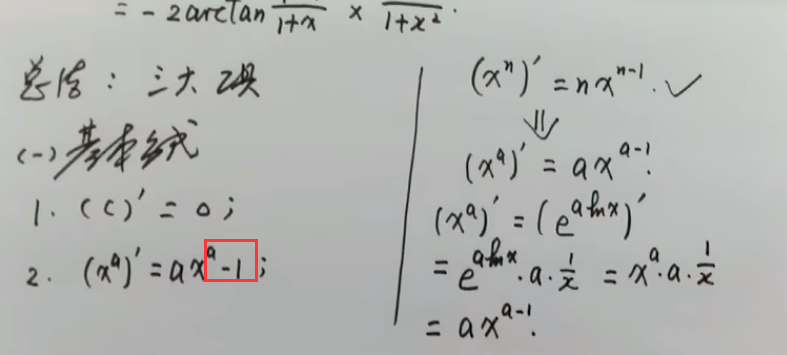 = -2arctan 1+x × 1+x²·
总结：三大块
(一) 基本公式
1. (C)' = 0；
2. (xᵃ)' = axᵃ-1；
(xⁿ)' = nxⁿ⁻¹. ✓
⇓
(xᵃ)' = axᵃ⁻¹.
(xᵃ)' = (eᵃˡⁿˣ)'
= eᵃˡⁿˣ·a·1/x = xᵃ·a·1/x
= axᵃ⁻¹.